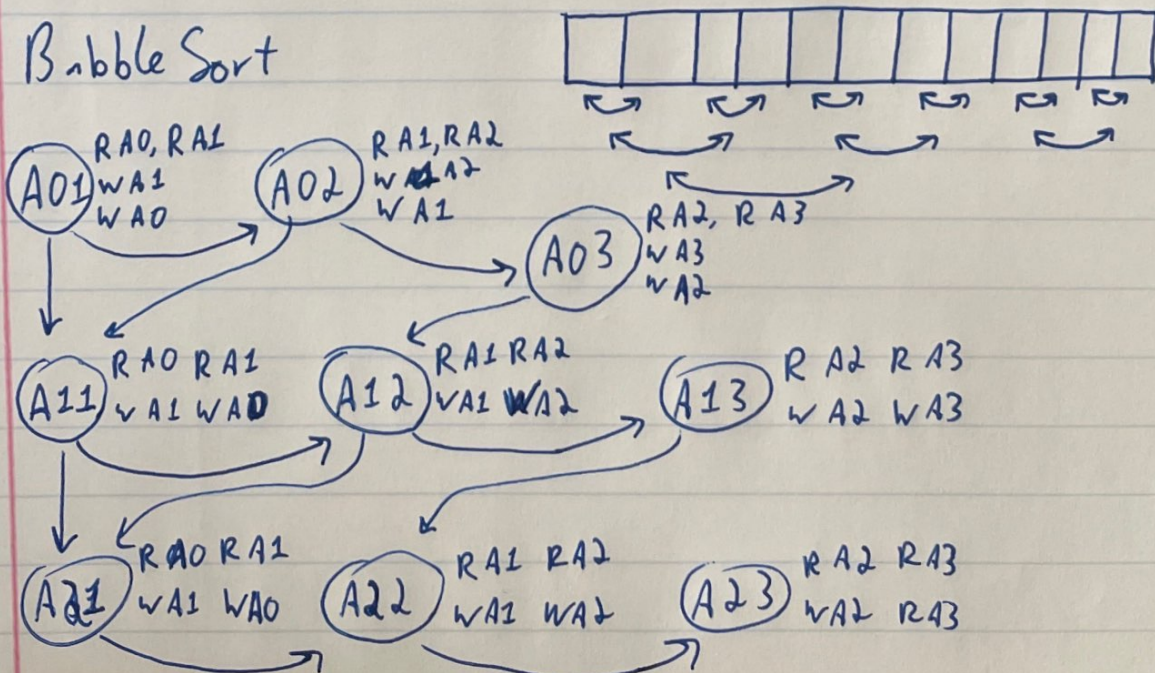 Bubble Sort
A01
RA0, RA1
WA1
WA0
A02
RA1, RA2
W A2
WA1
A03
RA2, RA3
WA3
WA2
A11
RA0 RA1
WA1 WA0
A12
RA1 RA2
WA1 WA2
A13
RA2 RA3
WA2 WA3
A21
RA0 RA1
WA1 WA0
A22
RA1 RA2
WA1 WA2
A23
RA2 RA3
WA2 RA3